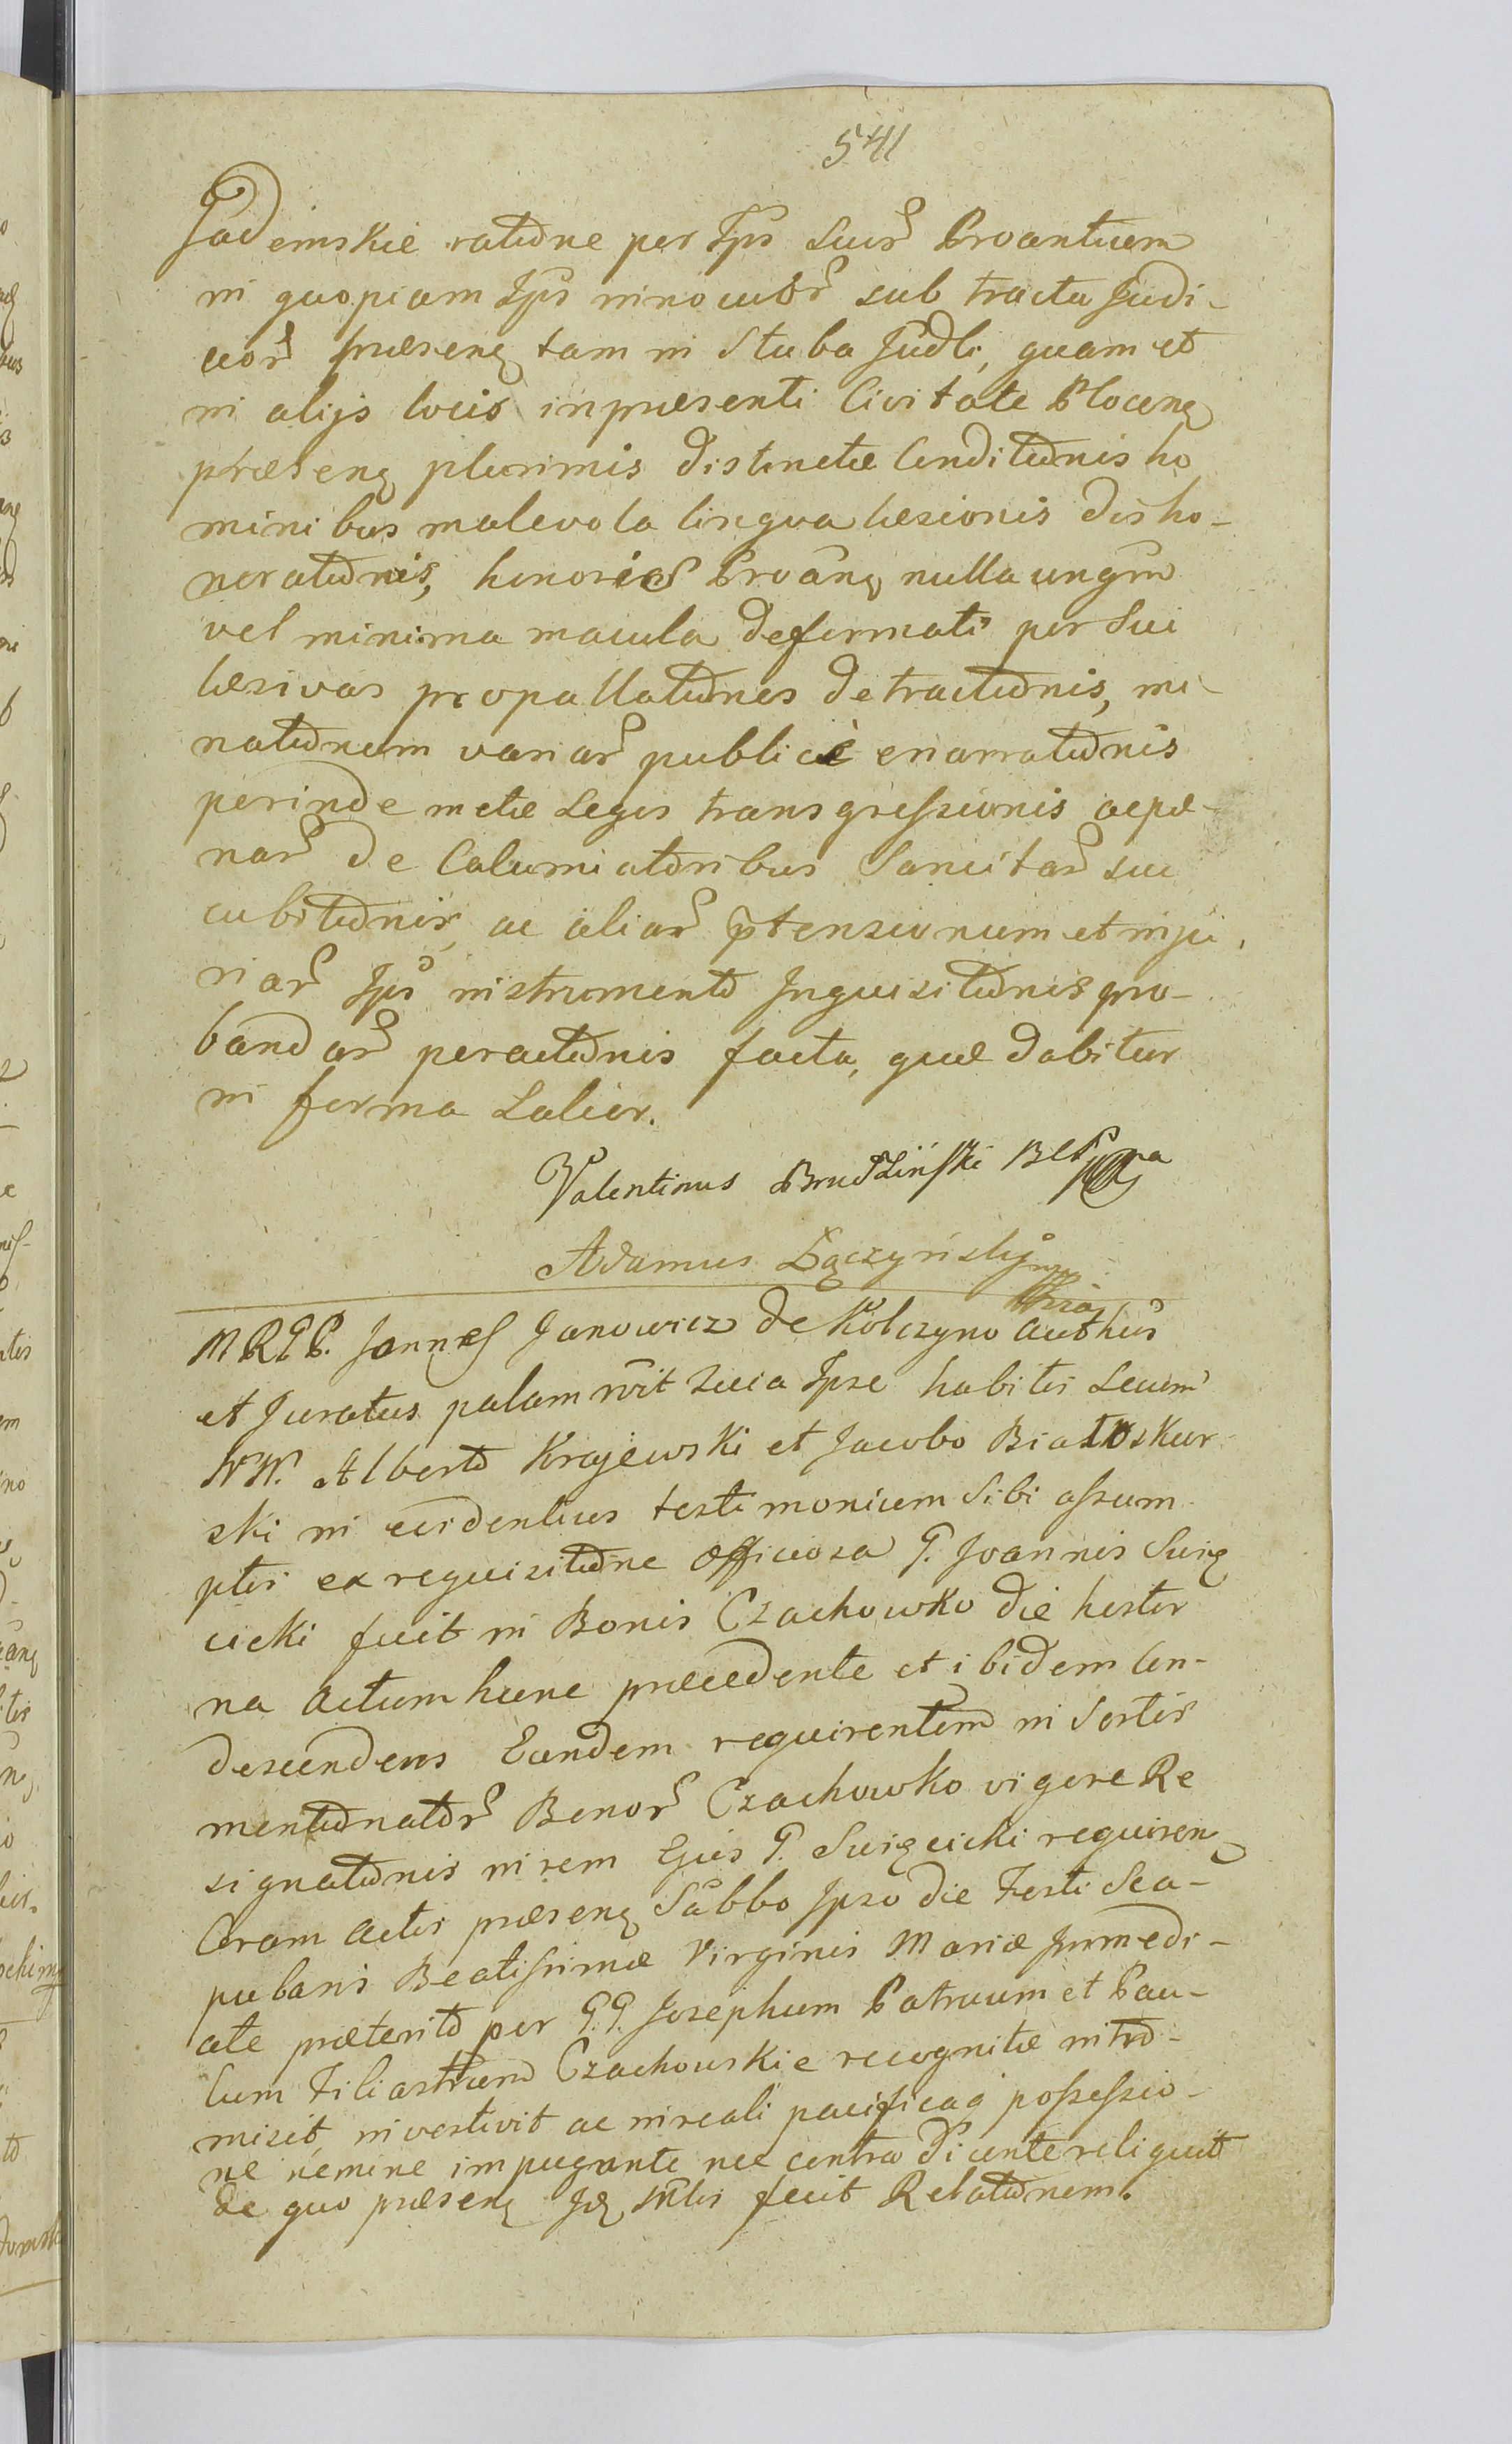 541
Jademskie ratione per Ips Suor Proantuem
in quopiam Ips innocuor sub tractu Judi-
cior præsenq tam in Stuba Judli, quam et
in alijs locis in præsenti Civitate Plocenq
præsenq plurimis distinctæ Conditionis ho
minibus malevola lingva læsionis disho-
norationis, honoris Proanq nulla unqm
vel minima macula deformati per Sui
læsivas propallationes detractionis, mi-
nationum variar publicè enarrationis
perinde metæ Legis transgressionis ac pæ-
nar de Calumiatoribus Sancitar suc
cubitionis, ac aliar ptensionum et inju,
riar Ips instrumento Inquisitionis pro-
bandar peractionis facta, quæ dabitur
in forma Salior.
Valentinus Brudzinski
Adamus Łączyński
M R G P. Joannes Janowicz de Kolczyno Authus
et Juratus palam rvit Quia Ipse habitis Secum
NN. Alberto Krajewski et Jacobo Białoskur
ski in evidentius testimonium Sibi assum
ptis ex requisitione officiosa G. Joannis Swię
cicki fuit in Bonis Czachowko die hester
na Actum hunc præcedente et ibidem Con-
descendens Eundem requirentem in Sortis
mentionator Bonor Czachowko vigore Re
signationis in rem Ejus G. Swięcicki requirenq
Coram Actis præsenq Sabbo Ipso die Festi Sca-
pularis Beatissimæ Virginis Mariæ Immedi-
ate præterito per G.G. Josephum Patruum et Pau-
lum Filiastrum Czachowskie recognitæ intro-
misit, investivit ac in reali pacificaq possessio-
ne nemine impugnante nec contradicente reliquit
de quo præsenq Jdq Mlis fecit Relationem.